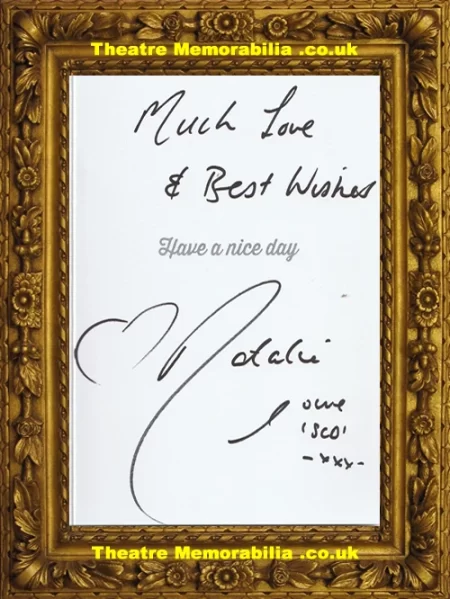 Theatre Memorabilia .co.uk
Much Love
& Best Wishes
Have a nice day
Natalie
'SCD'
-xxx-
Theatre Memorabilia .co.uk